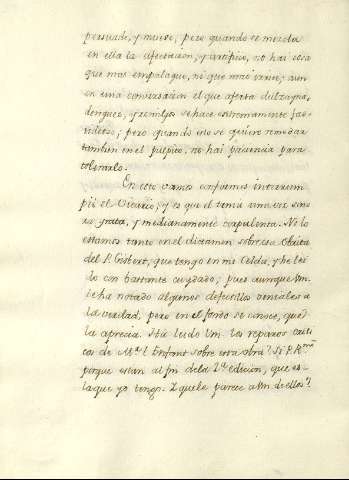 persuade, y mueve; pero quando se mezcla
en ella la afectacion, y artificio, no hai cosa
que mas empalague, ni que mas irrite; aun
en una conversacion el que afecta dulzayna,
dengues, y remilgos se hace extremamente fas-
tidioso; pero quando esto se quiere remedar
tambien en el pulpito, no hai paciencia para
tolerarlo.
En esto vamos conformes interrum-
pió el Vicario; y es que el tema una vez sino
es grata, y medianamente corpulenta. No lo
estamos tanto en el dictamen sobre esa obrita
del P. Gisbert, que tengo en mi Celda, y he lei-
do con bastante cuydado; pues aunque Vm.
le ha notado algunos defectillos veniales a
la verdad, pero en el fondo se conoce, que
la aprecia. Ha leido Vm. los reparos criti-
cos de Mr. l'Enfant sobre esta obra? Si P. Rmo.
porque estan al fin de la 2.ª edicion, que es
la que yo tengo. Y que le parece a Vm de ellos?